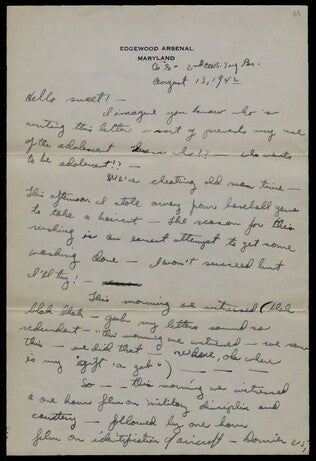 EDGEWOOD ARSENAL
MARYLAND
August 13, 1942
Hello sweet! –
I imagine you know who's
writing this letter – sort of prevents my use
of the adolescent who?? – who wants
to be adolescent!? –
We're cheating old man time –
This afternoon I stole away from baseball game
to take a haircut – The reason for this
rushing is an earnest attempt to get some
washing done – I won't succeed but
I'll try! –
This morning we witnessed (blah
blah blah – gosh my letters sound so
redundant – "this morning we witnessed – we saw
this – we did that – where, oh where
is my "gift 'a gab") –
So – – this morning we witnessed
a one hour film on military discipline and
courtesy – followed by one hour
film on identification of aircraft – Dornier 215,